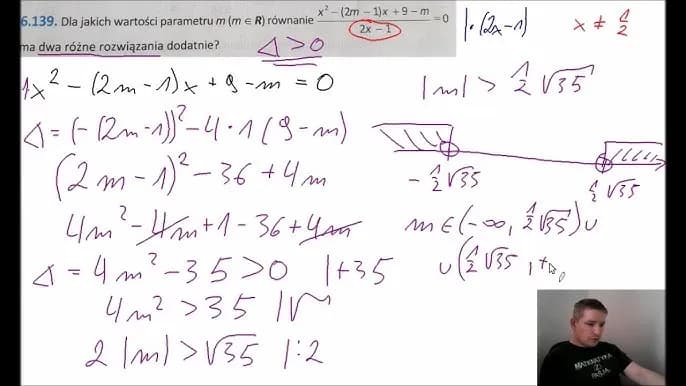 6.139. Dla jakich wartości parametru m (m ∈ R) równanie (x² − (2m − 1)x + 9 − m)/(2x − 1) = 0
ma dwa różne rozwiązania dodatnie?
Δ > 0
|·(2x−1)
x ≠ 1/2
1x² − (2m−1)x + 9 − m = 0
Δ = (−(2m−1))² − 4·1(9−m)
(2m−1)² − 36 + 4m
4m² − 4m + 1 − 36 + 4m
Δ = 4m² − 35 > 0 |+35
4m² > 35 |√
2|m| > √35 |:2
|m| > 1/2 √35
− 1/2 √35
1/2 √35
m ∈ (−∞, 1/2 √35) ∪
∪ (1/2 √35, +
MATEMATYKA
PASJA